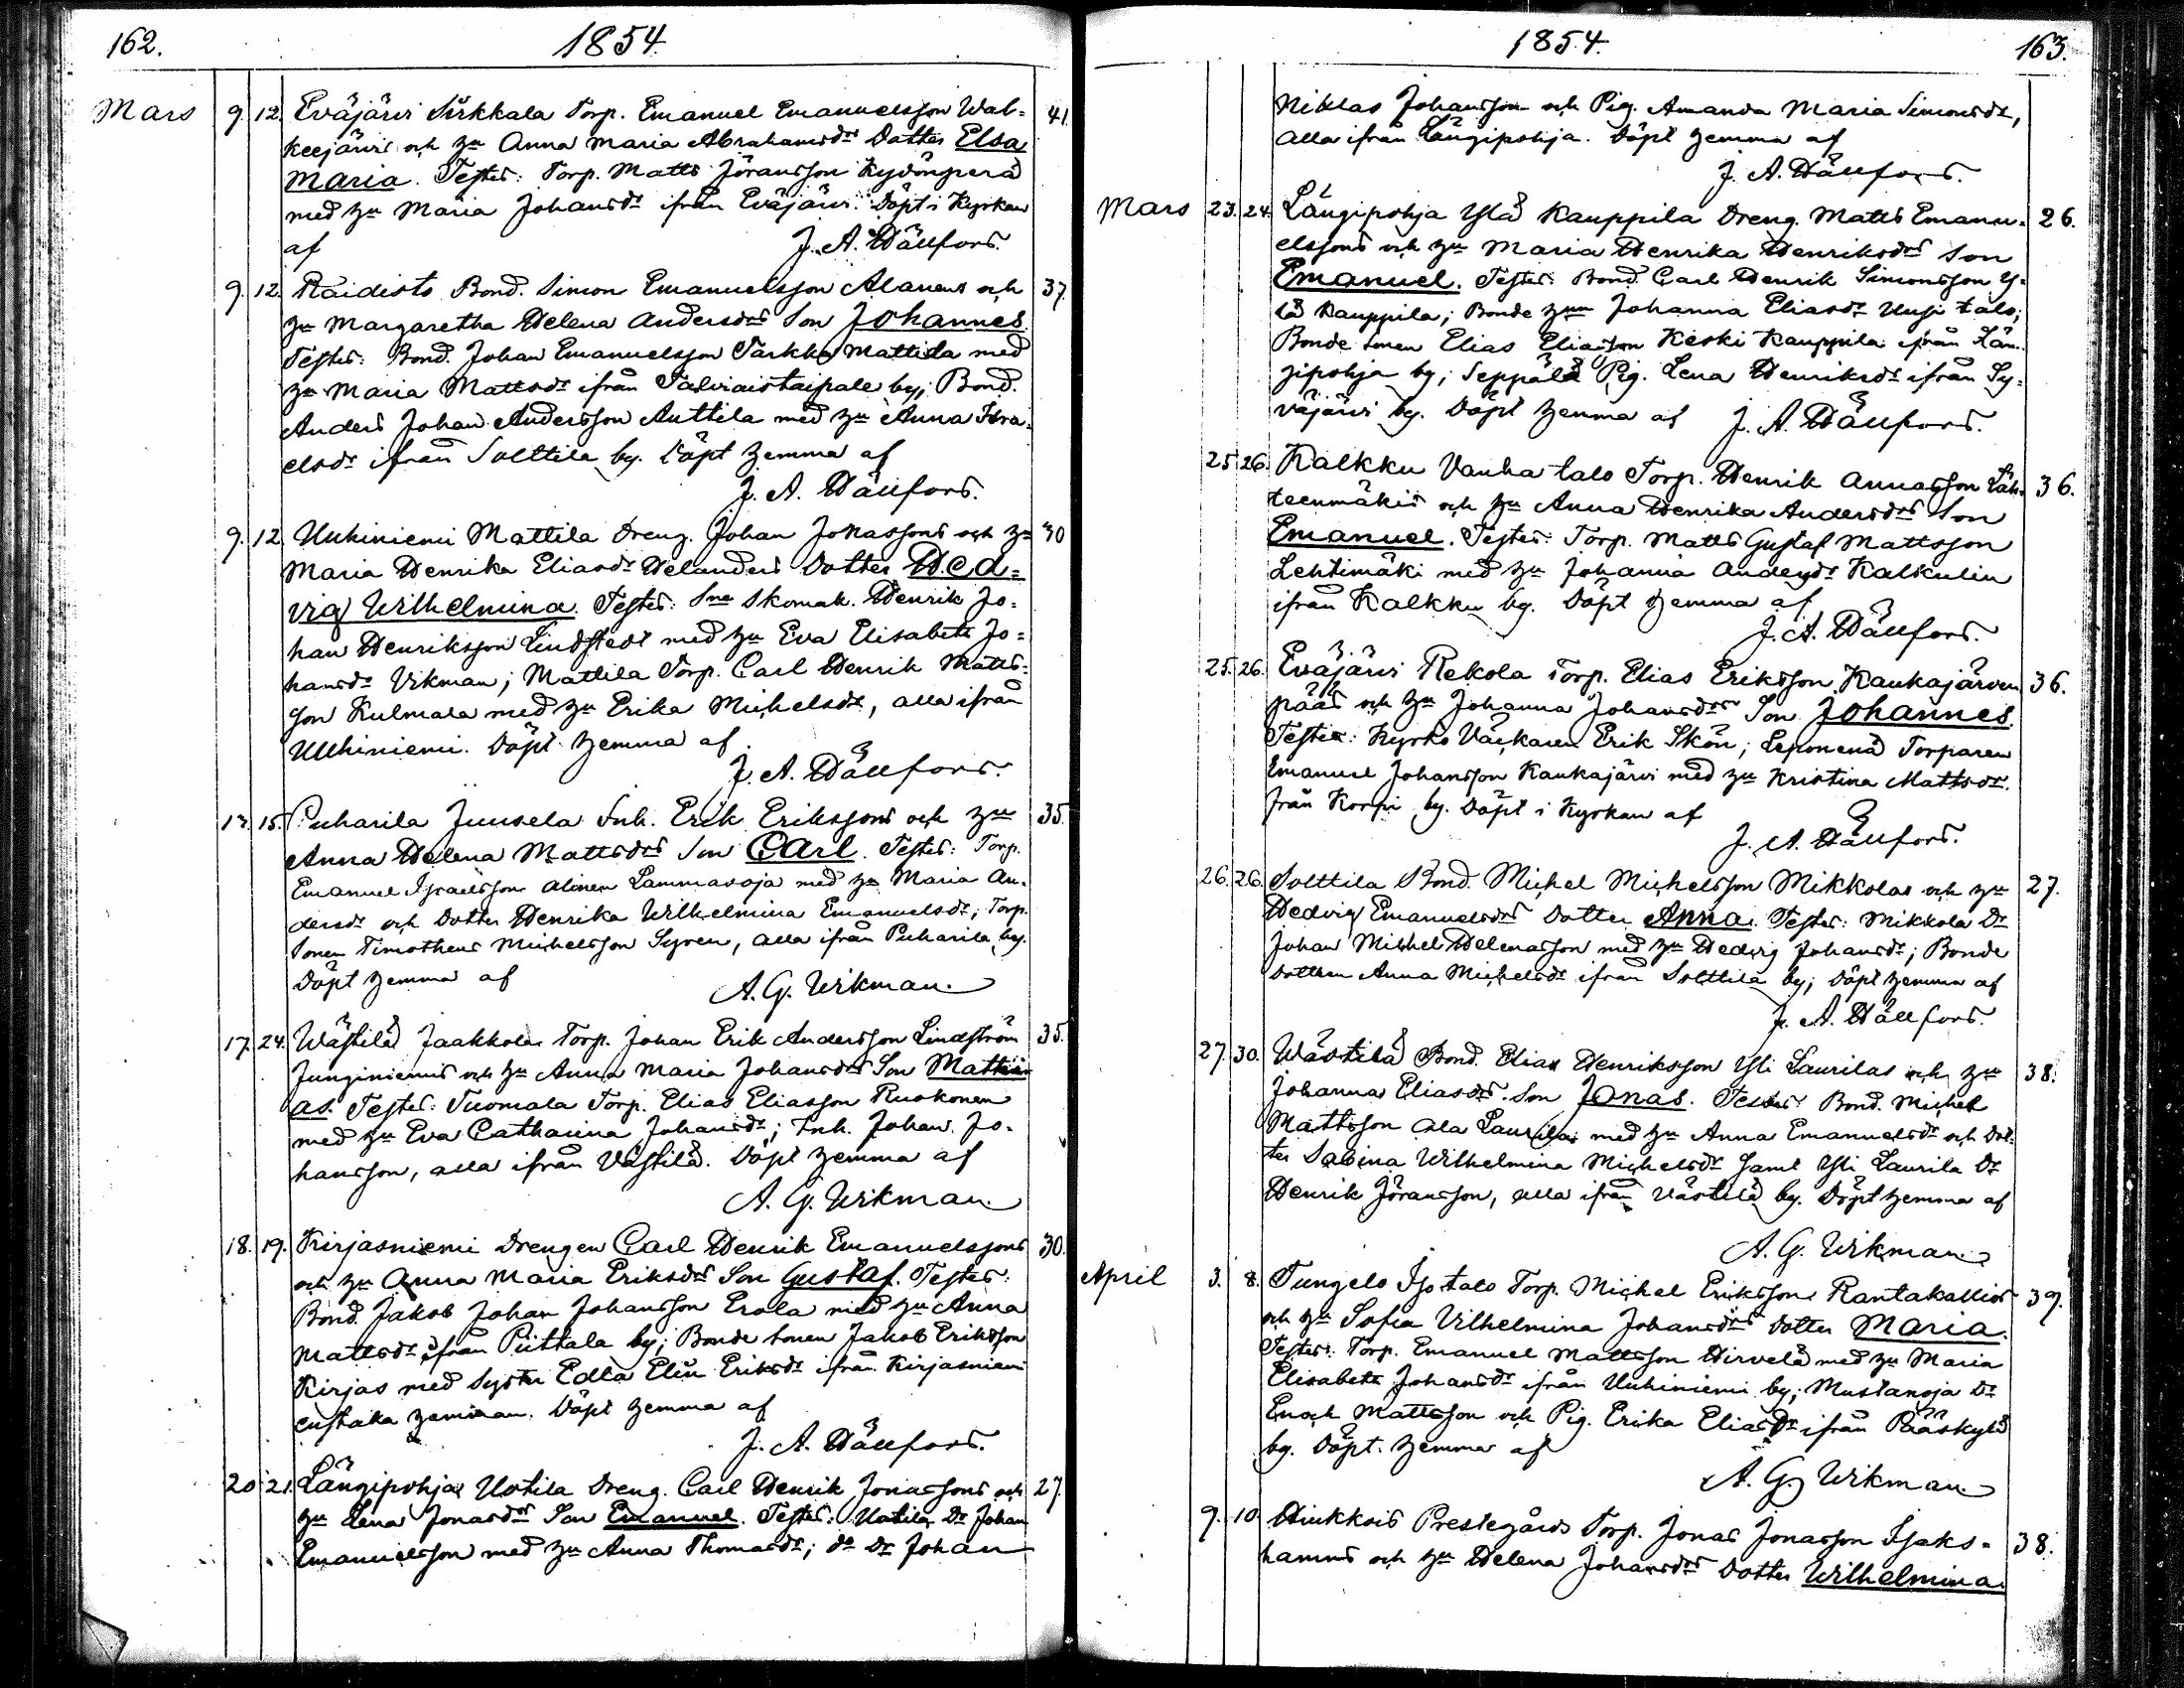 162. 1854.
Mars 9. 12. Eväjärvi Sirkkala Torp. Emanuel Emanuelsson Wal= 41.
keejärvi och hu Anna Maria Abrahamsdrs Dotter Elsa
Maria. Testes: Torp. Matts Jöransson Kydönperä
med hu Maria Johansdr ifrån Eväjärvi. Döpt i Kyrkan
af J. A. Hällfors.
9. 12. Raidisto Bond. Simon Emanuelsson Alanens och 37
hu Margaretha Helena Andersdrs Son Johannes.
Testes: Bond. Johan Emanuelsson Tarkka Mattila med
hu Maria Mattsdr ifrån Talviaistaipale by; Bond.
Anders Johan Andersson Anttila med hu Anna Isra-
elsdr ifrån Solttila by. Döpt hemma af
J. A. Hällfors.
9. 12. Unhiniemi Mattila Dreng. Johan Jonassons och hu 30
Maria Henrika Eliasdr Helanders Dotter Hed=
vig Wilhelmina. Testes: Sne Skomak. Henrik Jo=
han Henriksson Lindstedt med hu Eva Elisabeth Jo=
hansdr Vikman; Mattila Torp. Carl Henrik Matts=
son Kulmala med hu Erika Michelsdr, alla ifrån
Uuhiniemi. Döpt hemma af
J. A. Hällfors.
13. 15. Puharila Juusela Inh. Erik Erikssons och hu 35
Anna Helena Mattsdrs Son Carl. Testes: Torp.
Emanuel Israelsson Alinen Lammasoja med hu Maria An-
dersdr och Dotter Henrika Wilhelmina Emanuelsdr; Torp.
Sonen Timotheus Michelsson Syren, alla ifrån Puharila by.
Döpt hemma af A. G. Wikman.
17. 24. Wästilä Jaakkola Torp. Johan Erik Andersson Lindström 35.
Junginiemis och hu Anna Maria Johansdrs Son Matthi
as. Testes: Tuomala Torp. Elias Eliasson Ruokonen
med hu Eva Catharina Johansdr; Inh. Johan Jo-
hansson, alla ifrån Västilä. Döpt hemma af
A. G. Wikman.
18. 19. Kirjasniemi Drengen Carl Henrik Emanuelssons 30.
och hu Anna Maria Eriksdrs Son Gustaf. Testes:
Bond. Jakob Johan Johansson Erola med hu Anna
Mattsdr ifrån Piittala by; Bonde sonen Jakob Eriksson
Kirjas med Syster Edla Elin Eriksdr ifrån Kirjasniemi
enstaka hemman. Döpt hemma af
J. A. Hällfors.
20 21. Längipohja Uotila Dreng. Carl Henrik Jonassons och 27.
hu Lena Jonasdrs Son Emanuel. Testes: Uotila Dr Johan
Emanuelsson med hu Anna Thomasdr; do Dr Johan
1854. 163.
Niklas Johansson och Pig. Amanda Maria Simonsdr,
alla ifrån Längipohja. Döpt hemma af
J. A. Hällfors.
Mars 23. 24. Längipohja Ylä Kauppila Dreng. Matts Emanu- 26.
elssons och hu Maria Henrika Henriksdrs Son
Emanuel. Testes: Bond. Carl Henrik Simonsson Y-
lä Kauppila; Bonde hun Johanna Eliasdr Uusi talo;
Bonde sonen Elias Eliasson Keski Kauppila ifrån Län-
gipohja by; Seppälä Pig. Lena Henriksdr ifrån Sy=
väjärvi by. Döpt hemma af J. A. Hällfors.
25 26. Kalkku Vanha talo Torp. Henrik Annasson Läh- 36.
teenmäkis och hu Anna Henrika Andersdrs Son
Emanuel. Testes: Torp. Matts Gustaf Mattsson
Lehtimäki med hu Johanna Andersdr Kalkulin
ifrån Kalkku by. Döpt hemma af
J. A. Hällfors.
25. 26. Eväjärvi Rekola Torp. Elias Eriksson Kaukajärven 36.
pääs och hu Johanna Johansdrs Son Johannes.
Testes: Kyrko Väckaren Erik Skön; Leponenä Torparen
Emanuel Johansson Kaukajärvi med hu Kristina Mattsdr
från Korpi by. Döpt i Kyrkan af
J. A. Hällfors.
26. 26. Solttila Bond. Michel Michelsson Mikkolas och hu 27.
Hedvig Emanuelsdrs Dotter Anna. Testes: Mikkola Dr
Johan Michel Helenasson med hu Hedvig Johansdr; Bonde
dottren Anna Michelsdr ifrån Solttila by; Döpt hemma af
J. A. Hällfors.
27. 30. Wästilä Bond. Elias Henriksson Yli Laurilas och hu 38.
Johanna Eliasdrs Son Jonas. Testes: Bond. Michel
Mattsson Ala Laurila med hu Anna Emanuelsdr och Dot-
ter Sabina Wilhelmina Michelsdr samt Yli Laurila Dr
Henrik Jöransson, alla ifrån Västilä by. Döpt hemma af
A. G. Wikman.
April 3. 8. Tungelo Iso talo Torp. Michel Erikssons Rantakallios 39.
och hu Sofia Vilhelmina Johansdrs Dotter Maria.
Testes: Torp. Emanuel Mattsson Hirvelä med hu Maria
Elisabeth Johansdr ifrån Uuhiniemi by; Mustanoja Dr
Enoch Mattsson och Pig. Erika Eliasdr ifrån Pääskylä
by. Döpt hemma af
A. G. Wikman.
9. 10. Hiukkois Prestegårds Torp. Jonas Jonasson Isaks- 38.
hamns och hu Helena Johansdrs Dotter Wilhelmina.